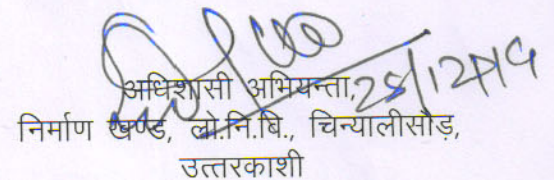 अधिशासी अभियन्ता,
निर्माण खण्ड, लो.नि.बि., चिन्यालीसौड़,
उत्तरकाशी